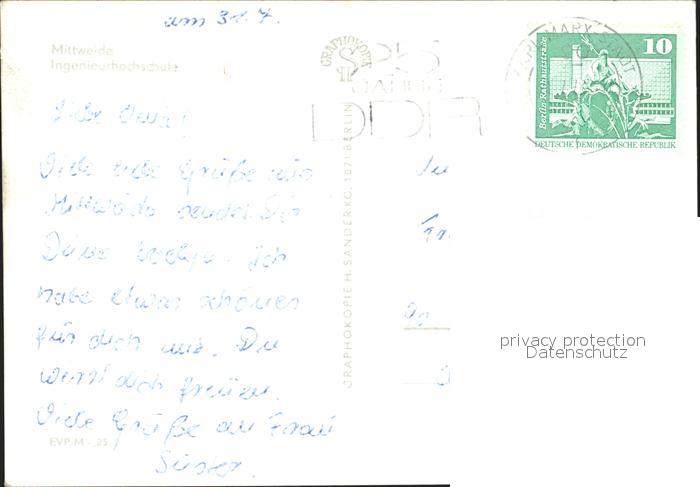 am 31.7.
Mittweida
Ingenieurhochschule
GRAPHOKOPIE
25
JAHRE
DDR
KARL-MARX-STADT
10
Berlin · Rathausstraße
DEUTSCHE DEMOKRATISCHE REPUBLIK
Liebe
Viele liebe Grüße aus
Mittweida sendet Dir
Deine Ich
habe etwas schönes
für dich mit. Du
wirst dich freuen.
Viele Grüße an Frau
GRAPHOKOPIE H. SANDER KG, 1071 BERLIN
EVP M -,25
privacy protection
Datenschutz